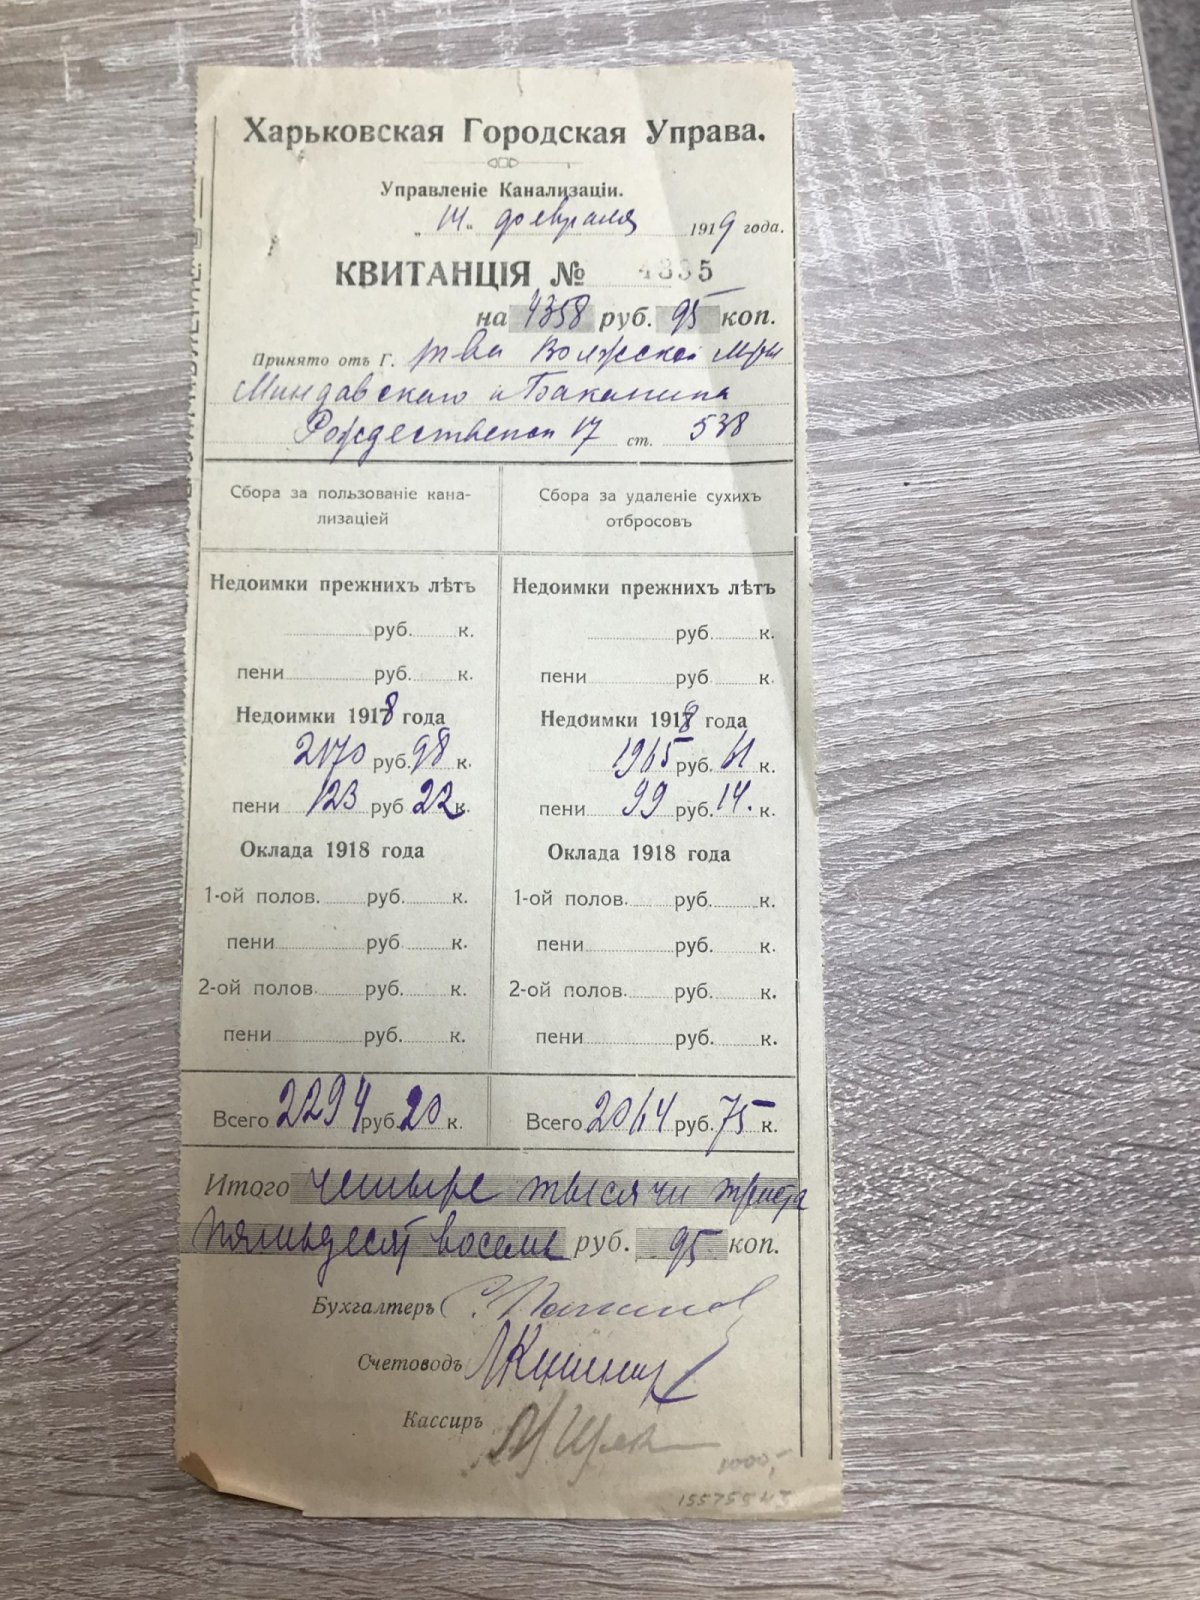 Харьковская Городская Управа.
Управленіе Канализаціи.
„14„ февраля 1919 года.
КВИТАНЦІЯ № 4835
на 4358 руб. 95 коп.
Принято отъ Г. т-ва Волжской М-ры
Миндовского и Бакакина
Рождественск 17 ст. 538
Сбора за пользованіе кана-
лизаціей
Сбора за удаленіе сухихъ
отбросовъ
Недоимки прежнихъ лѣтъ
руб. к.
пени руб. к.
Недоимки 1918 года
2170 руб. 98 к.
пени 123 руб 22 к.
Оклада 1918 года
1-ой полов. руб. к.
пени руб. к.
2-ой полов. руб. к.
пени руб. к.
Всего 2294 руб. 20 к.
Недоимки прежнихъ лѣтъ
руб. к.
пени руб к.
Недоимки 1918 года
1965 руб. 61 к.
пени 99 руб. 14. к.
Оклада 1918 года
1-ой полов. руб. к.
пени руб. к.
2-ой полов. руб. к.
пени руб. к.
Всего 2064 руб. 75 к.
Итого четыре тысячи триста
пятьдесят восемь руб. 95 коп.
Бухгалтеръ
Счетоводъ
Кассиръ
1000,-
15575543